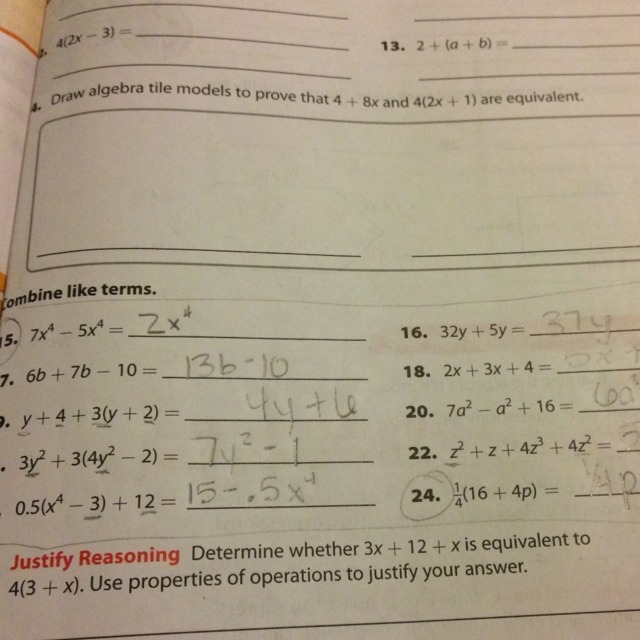 4(2x − 3) =
13. 2 + (a + b) =
4. Draw algebra tile models to prove that 4 + 8x and 4(2x + 1) are equivalent.
Combine like terms.
15. 7x⁴ − 5x⁴ = 2x⁴
16. 32y + 5y = 37y
7. 6b + 7b − 10 = 13b - 10
18. 2x + 3x + 4 = 5x +
9. y + 4 + 3(y + 2) = 4y + 6
20. 7a² − a² + 16 = 6a²
. 3y² + 3(4y² − 2) = 7y² - 1
22. z² + z + 4z³ + 4z² =
0.5(x⁴ − 3) + 12 = 15 - .5x⁴
24. ¼(16 + 4p) = 4p
Justify Reasoning Determine whether 3x + 12 + x is equivalent to
4(3 + x). Use properties of operations to justify your answer.